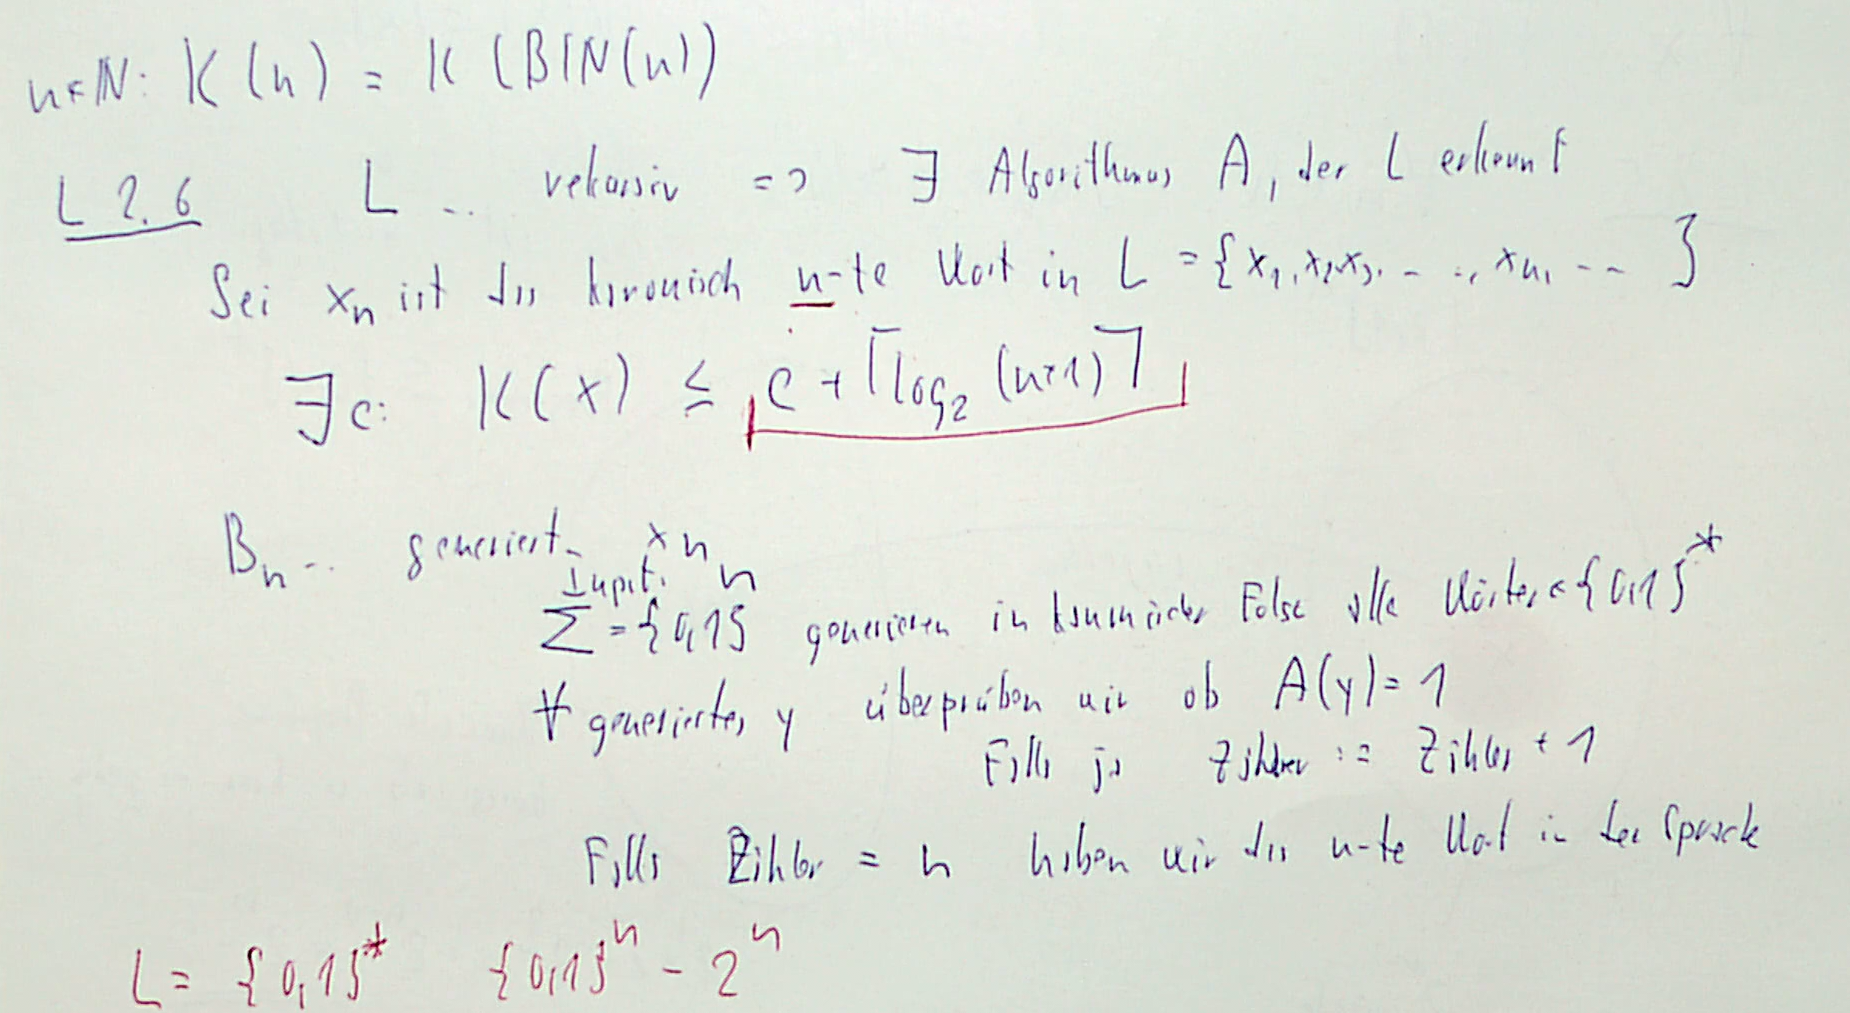 n∈ℕ: K(n) = K(BIN(n))
L 2.6 L .. rekursiv => ∃ Algorithmus A, der L erkennt
Sei xₙ ist das kanonisch n-te Wort in L = {x₁, x₂, x₃, - .., xₙ, -- }
∃c: K(x) ≤ c + ⌈log₂ (n+1)⌉
Bₙ .. generiert xₙ
Input: n
Σ = {0,1} generieren in kanonischer Folge alle Wörter ∈ {0,1}*
∀ generiertes y überprüben wir ob A(y) = 1
Falls ja Zähler := Zähler + 1
Falls Zähler = n haben wir das n-te Wort in der Sprache
L = {0,1}* {0,1}ⁿ - 2ⁿ